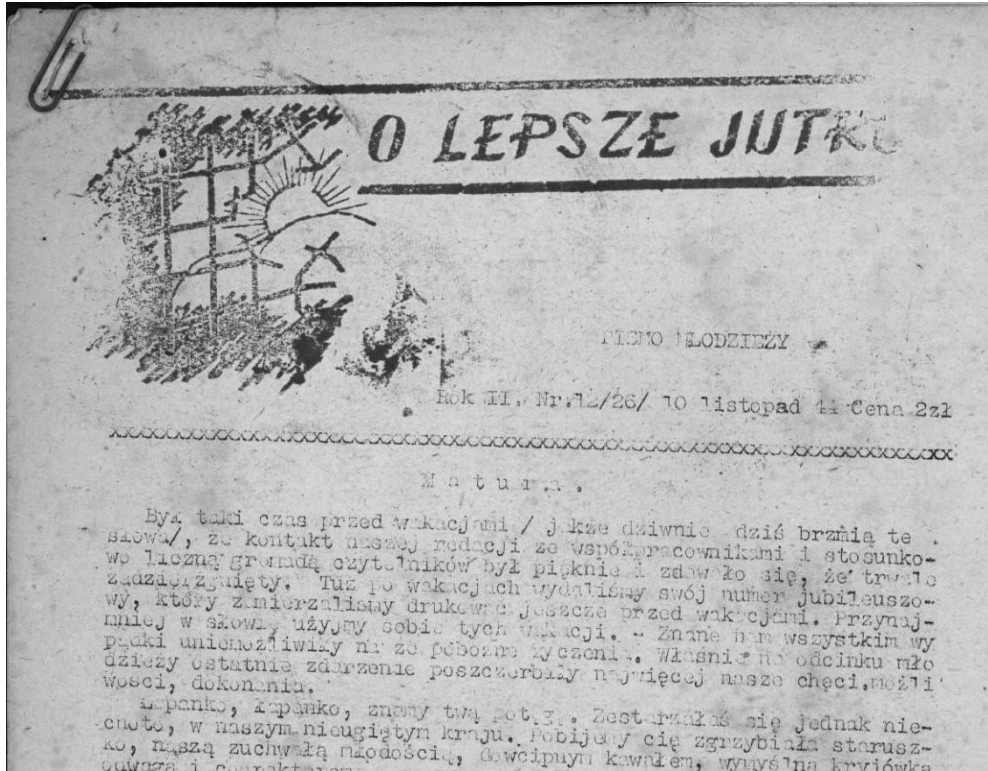 O LEPSZE JUTRO
PISMO MŁODZIEŻY
Rok II. Nr.12/26/ 10 listopad 44 Cena 2zł
xxxxxxxxxxxxxxxxxxxxxxxxxxxxxxxxxxxxxxxxxxxxxxxxxxxxxxxxxxxxxxxxxxxxxx
M a t u r a .
Był taki czas przed wakacjami / jakże dziwnie dziś brzmią te
słowa/, że kontakt naszej redacji ze współpracownikami i stosunko-
wo liczną gromadą czytelników był pięknie i zdawało się, że trwale
zadzierzgnięty. Tuż po wakacjach wydaliśmy swój numer jubileuszo-
wy, który zamierzaliśmy drukować jeszcze przed wakacjami. Przynaj-
mniej w słowie użyjmy sobie tych wakacji. - Znane nam wszystkim wy
padki uniemożliwiły na ze pobożne życzenia. Właśnie na odcinku mło
dzieży ostatnie zdarzenie poszczerbiły najwięcej nasze chęci, możli
wości, dokonania.
Łapanko, łapanko, znamy twą potęgę. Zestarzałaś się jednak nie-
cnoto, w naszym nieugiętym kraju. Pobijemy cię zgrzybiała starusz-
ko, naszą zuchwałą młodością, dowcipnym kawałem, wymyślną kryjówką
odwagą i charakterem